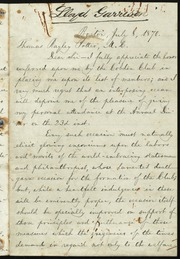 Lloyd Garrison
Boston, July 6, 1870.
Thomas Bayley Potter, M.P.
Dear Sir: I fully appreciate the honor
conferred upon me by the Cobden Club in
placing me upon its list of members; and it
can much regret that an interposing ocean
will deprive me of the pleasure of giving
my personal attendance at the Annual Din-
ner on the 23d inst.
Every such occasion must naturally
elicit glowing encomiums upon the labors
and worth of the world-embracing statesman
and philanthropist whose lamented death
gave occasion for the formation of the Club;
but, while a heartfelt indulgence in these
will be eminently proper, the occasion itself
should be specially improved in support of
those principles and the
measures which the exigencies of the times
demand in regard not only to the welfare